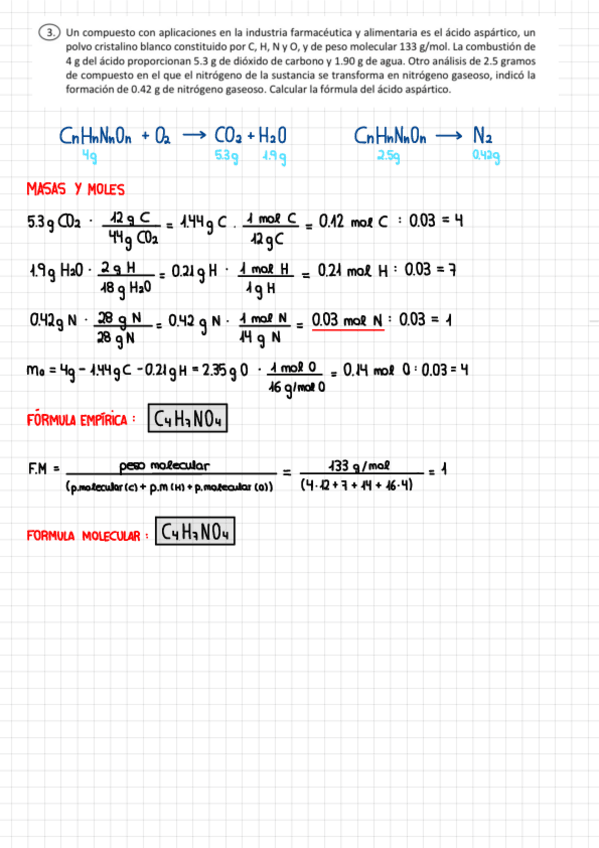 3. Un compuesto con aplicaciones en la industria farmacéutica y alimentaria es el ácido aspártico, un
polvo cristalino blanco constituido por C, H, N y O, y de peso molecular 133 g/mol. La combustión de
4 g del ácido proporcionan 5.3 g de dióxido de carbono y 1.90 g de agua. Otro análisis de 2.5 gramos
de compuesto en el que el nitrógeno de la sustancia se transforma en nitrógeno gaseoso, indicó la
formación de 0.42 g de nitrógeno gaseoso. Calcular la fórmula del ácido aspártico.
CnHnNnOn + O₂ → CO₂ + H₂O CnHnNnOn → N₂
4g 5.3g 1.9g 2.5g 0.42g
MASAS Y MOLES
5.3 g CO₂ · 12 g C / 44 g CO₂ = 1.44 g C · 1 mol C / 12 g C = 0.12 mol C : 0.03 = 4
1.9 g H₂O · 2 g H / 18 g H₂O = 0.21 g H · 1 mol H / 1 g H = 0.21 mol H : 0.03 = 7
0.42 g N · 28 g N / 28 g N = 0.42 g N · 1 mol N / 14 g N = 0.03 mol N : 0.03 = 1
mo = 4g - 1.44 g C - 0.21 g H = 2.35 g O · 1 mol O / 16 g/mol O = 0.14 mol O : 0.03 = 4
FÓRMULA EMPÍRICA : C₄H₇NO₄
F.M = peso molecular / (p.molecular (C) + p.m (H) + p.molecular (O)) = 133 g/mol / (4·12 + 7 + 14 + 16·4) = 1
FORMULA MOLECULAR : C₄H₇NO₄